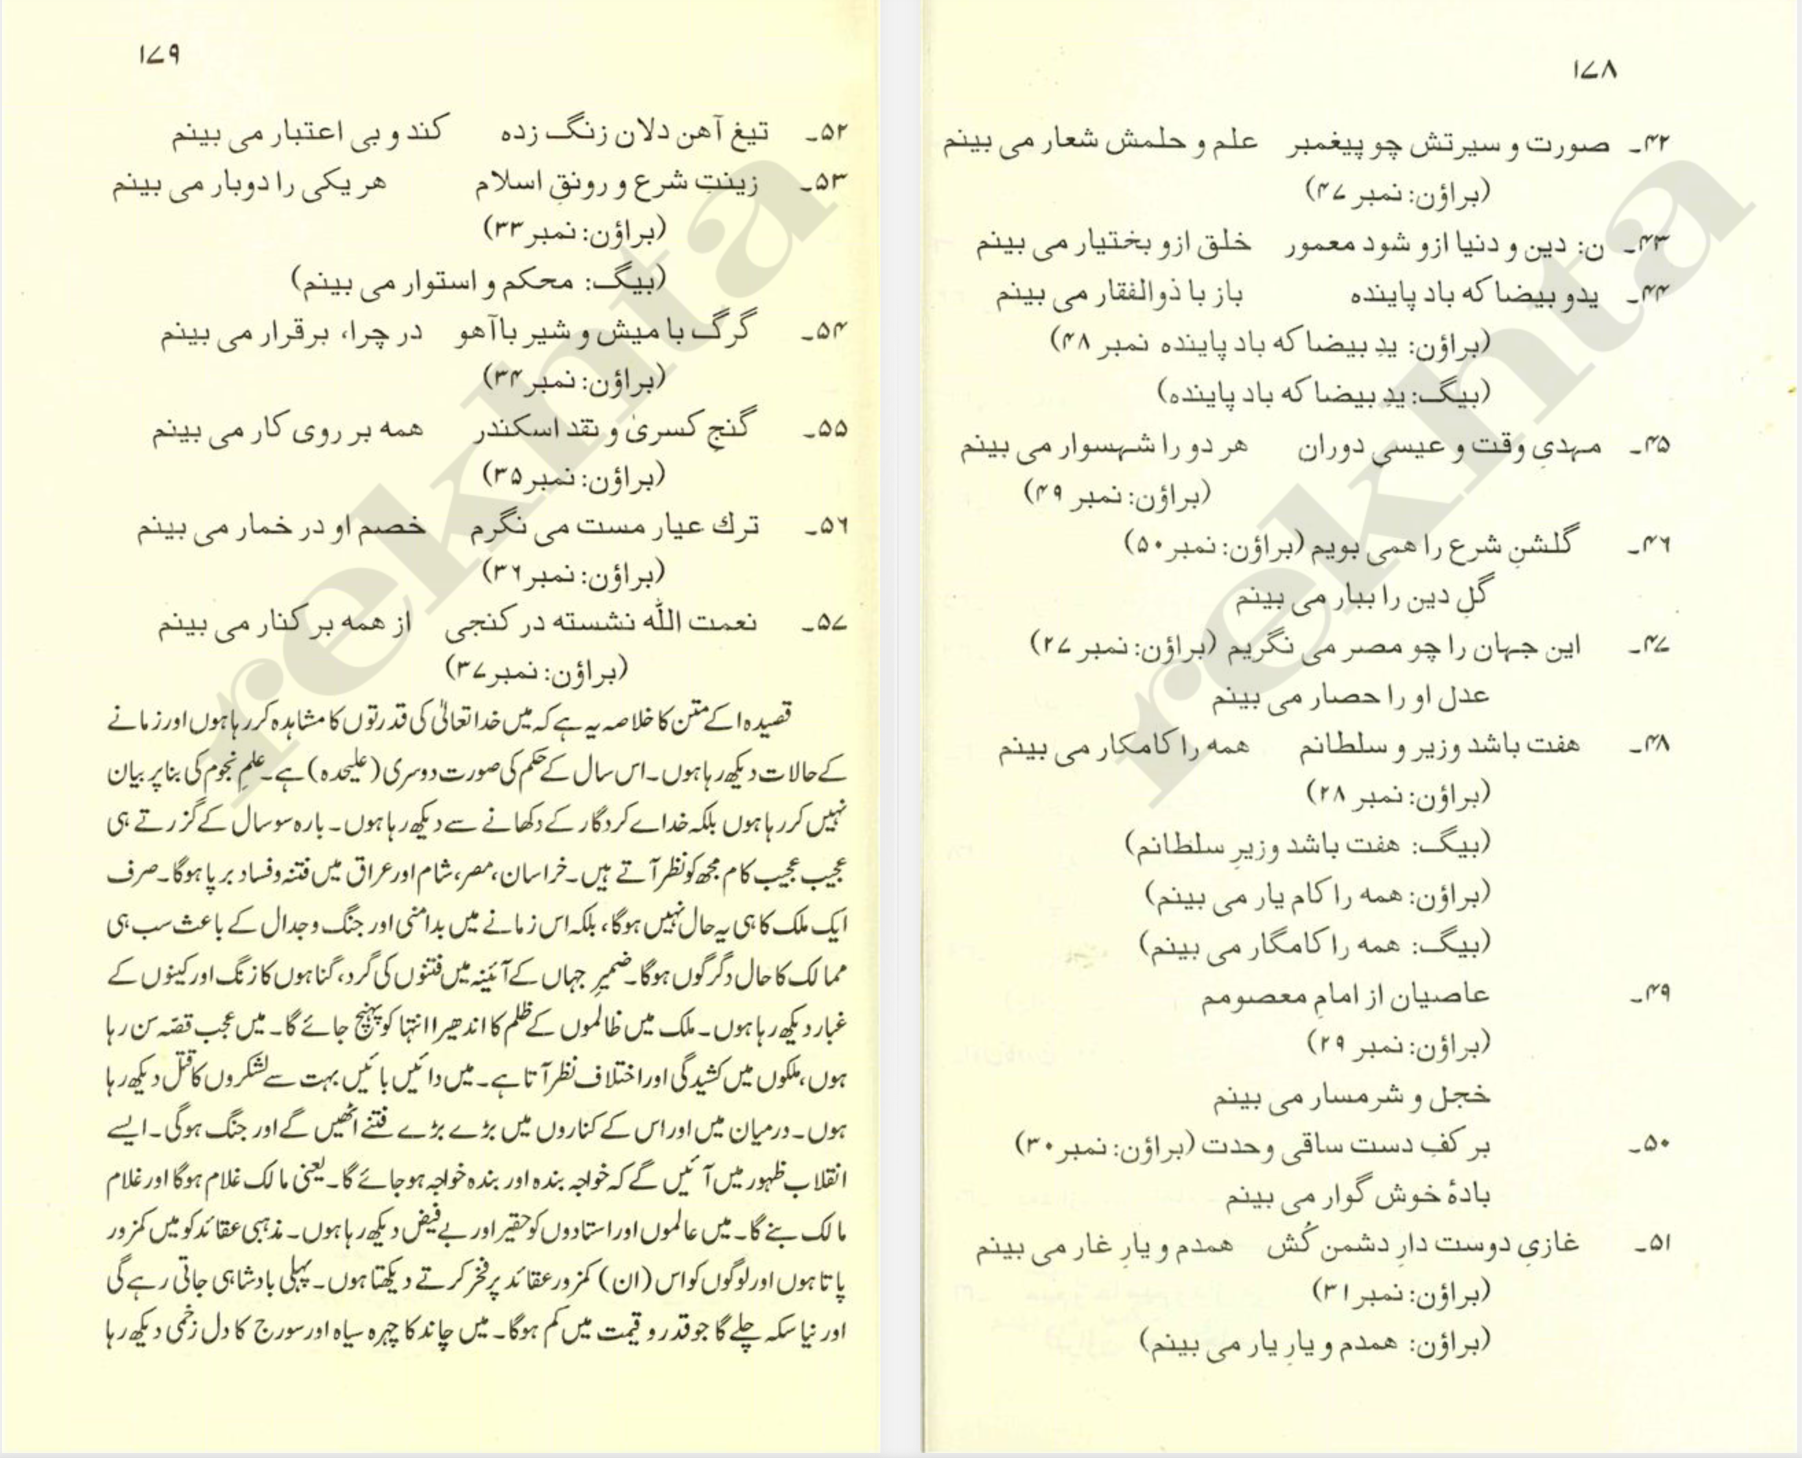 ۱۷۸
۴۲۔ صورت و سیرتش چو پیغمبر علم و حلمش شعار می بینم
(براؤن: نمبر ۴۷)
۴۳۔ ن: دین و دنیا ازو شود معمور خلق ازو بختیار می بینم
۴۴۔ یدو بیضا که باد پاینده باز با ذوالفقار می بینم
(براؤن: یدِ بیضا که باد پاینده نمبر ۴۸)
(بیگ: یدِ بیضا که باد پاینده)
۴۵۔ مہدیِ وقت و عیسیِ دوران هر دو را شہسوار می بینم
(براؤن: نمبر ۴۹)
۴۶۔ گلشنِ شرع را همی بویم (براؤن: نمبر ۵۰)
گلِ دین را ببار می بینم
۴۷۔ این جہان را چو مصر می نگریم (براؤن: نمبر ۲۷)
عدل او را حصار می بینم
۴۸۔ هفت باشد وزیر و سلطانم همه را کامکار می بینم
(براؤن: نمبر ۲۸)
(بیگ: هفت باشد وزیرِ سلطانم)
(براؤن: همه را کام یار می بینم)
(بیگ: همه را کامگار می بینم)
۴۹۔ عاصیان از امامِ معصومم
(براؤن: نمبر ۲۹)
خجل و شرمسار می بینم
۵۰۔ بر کفِ دست ساقی وحدت (براؤن: نمبر ۳۰)
بادۂ خوش گوار می بینم
۵۱۔ غازیِ دوست دارِ دشمن کُش همدم و یارِ غار می بینم
(براؤن: نمبر ۳۱)
(براؤن: همدم و یارِ یار می بینم)
۱۷۹
۵۲۔ تیغ آهن دلان زنگ زده کند و بی اعتبار می بینم
۵۳۔ زینتِ شرع و رونقِ اسلام هر یکی را دوبار می بینم
(براؤن: نمبر ۳۳)
(بیگ: محکم و استوار می بینم)
۵۴۔ گرگ با میش و شیر باآهو در چرا، برقرار می بینم
(براؤن: نمبر ۳۴)
۵۵۔ گنجِ کسریٰ و نقد اسکندر همه بر روی کار می بینم
(براؤن: نمبر ۳۵)
۵۶۔ ترك عیار مست می نگرم خصم او در خمار می بینم
(براؤن: نمبر ۳۶)
۵۷۔ نعمت اللّٰه نشسته در کنجی از همه بر کنار می بینم
(براؤن: نمبر ۳۷)
قصیدہ ا کے متن کا خلاصہ یہ ہے کہ میں خدا تعالیٰ کی قدرتوں کا مشاہدہ کر رہا ہوں اور زمانے
کے حالات دیکھ رہا ہوں۔ اس سال کے حکم کی صورت دوسری (علیحدہ) ہے۔ علمِ نجوم کی بنا پر بیان
نہیں کر رہا ہوں بلکہ خداے کردگار کے دکھانے سے دیکھ رہا ہوں۔ بارہ سو سال کے گزرتے ہی
عجیب عجیب کام مجھ کو نظر آتے ہیں۔ خراسان، مصر، شام اور عراق میں فتنہ و فساد برپا ہوگا۔ صرف
ایک ملک کا ہی یہ حال نہیں ہوگا، بلکہ اس زمانے میں بدامنی اور جنگ و جدال کے باعث سب ہی
ممالک کا حال دگرگوں ہوگا۔ ضمیرِ جہاں کے آئینہ میں فتنوں کی گرد، گناہوں کا زنگ اور کینوں کے
غبار دیکھ رہا ہوں۔ ملک میں ظالموں کے ظلم کا اندھیرا انتہا کو پہنچ جائے گا۔ میں عجب قصّہ سن رہا
ہوں، ملکوں میں کشیدگی اور اختلاف نظر آتا ہے۔ میں دائیں بائیں بہت سے لشکروں کا قتل دیکھ رہا
ہوں۔ درمیان میں اور اس کے کناروں میں بڑے بڑے فتنے اٹھیں گے اور جنگ ہوگی۔ ایسے
انقلاب ظہور میں آئیں گے کہ خواجہ بندہ اور بندہ خواجہ ہوجائے گا۔ یعنی مالک غلام ہوگا اور غلام
مالک بنے گا۔ میں عالموں اور استادوں کو حقیر اور بے فیض دیکھ رہا ہوں۔ مذہبی عقائد کو میں کمزور
پاتا ہوں اور لوگوں کو اس (ان) کمزور عقائد پر فخر کرتے دیکھتا ہوں۔ پہلی بادشاہی جاتی رہے گی
اور نیا سکہ چلے گا جو قدر و قیمت میں کم ہوگا۔ میں چاند کا چہرہ سیاہ اور سورج کا دل زخمی دیکھ رہا
rekhta
rekhta